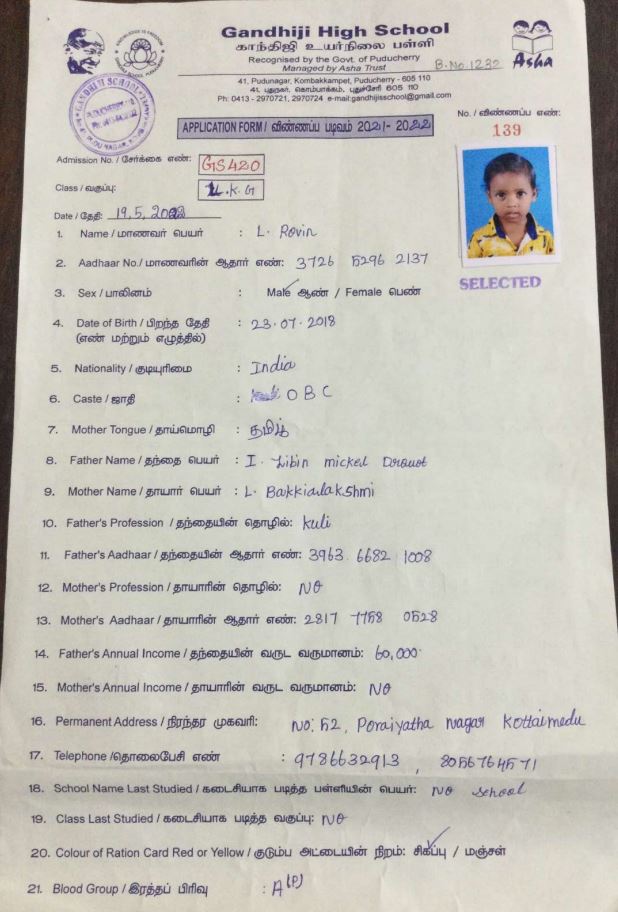 Gandhiji High School
காந்திஜி உயர்நிலை பள்ளி
Recognised by the Govt. of Puducherry
Managed by Asha Trust
B.No.1232
Asha
41, Pudunagar, Kombakkampet, Puducherry - 605 110
41, புதுநகர், கொம்பாக்கம், புதுச்சேரி 605 110
Ph: 0413 - 2970721, 2970724 e-mail:gandhijisschool@gmail.com
APPLICATION FORM / விண்ணப்ப படிவம் 2021 - 2022
No. / விண்ணப்ப எண்:
139
Admission No. / சேர்க்கை எண்: GS420
Class / வகுப்பு: L.K.G
Date / தேதி: 19.5.2022
SELECTED
1. Name / மாணவர் பெயர் : L. Rovin
2. Aadhaar No./ மாணவரின் ஆதார் எண்: 3726 5296 2137
3. Sex / பாலினம் : Male ஆண் / Female பெண்
4. Date of Birth / பிறந்த தேதி : 23.07.2018
(எண் மற்றும் எழுத்தில்)
5. Nationality / குடியுரிமை : India
6. Caste / ஜாதி : OBC
7. Mother Tongue / தாய்மொழி : தமிழ்
8. Father Name / தந்தை பெயர் : I. Libin micked
9. Mother Name / தாயார் பெயர் : L. Bakkialakshmi
10. Father's Profession / தந்தையின் தொழில்: kuli
11. Father's Aadhaar / தந்தையின் ஆதார் எண்: 3963 6682 1008
12. Mother's Profession / தாயாரின் தொழில்: NO
13. Mother's Aadhaar / தாயாரின் ஆதார் எண்: 2817 7758 0528
14. Father's Annual Income / தந்தையின் வருட வருமானம்: 60,000
15. Mother's Annual Income / தாயாரின் வருட வருமானம்: NO
16. Permanent Address / நிரந்தர முகவரி: NO: 52, Poraiyatha nagar Kottaimedu
17. Telephone /தொலைபேசி எண் : 9786632913 , 8056764571
18. School Name Last Studied / கடைசியாக படித்த பள்ளியின் பெயர்: NO school
19. Class Last Studied / கடைசியாக படித்த வகுப்பு: NO
20. Colour of Ration Card Red or Yellow / குடும்ப அட்டையின் நிறம்: சிகப்பு / மஞ்சள்
21. Blood Group / இரத்தப் பிரிவு : A(P)